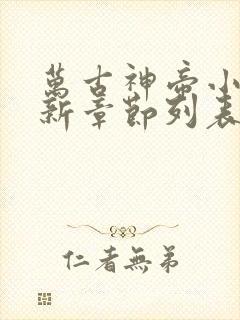 萬古神帝小
新章節列表
仁者無弟